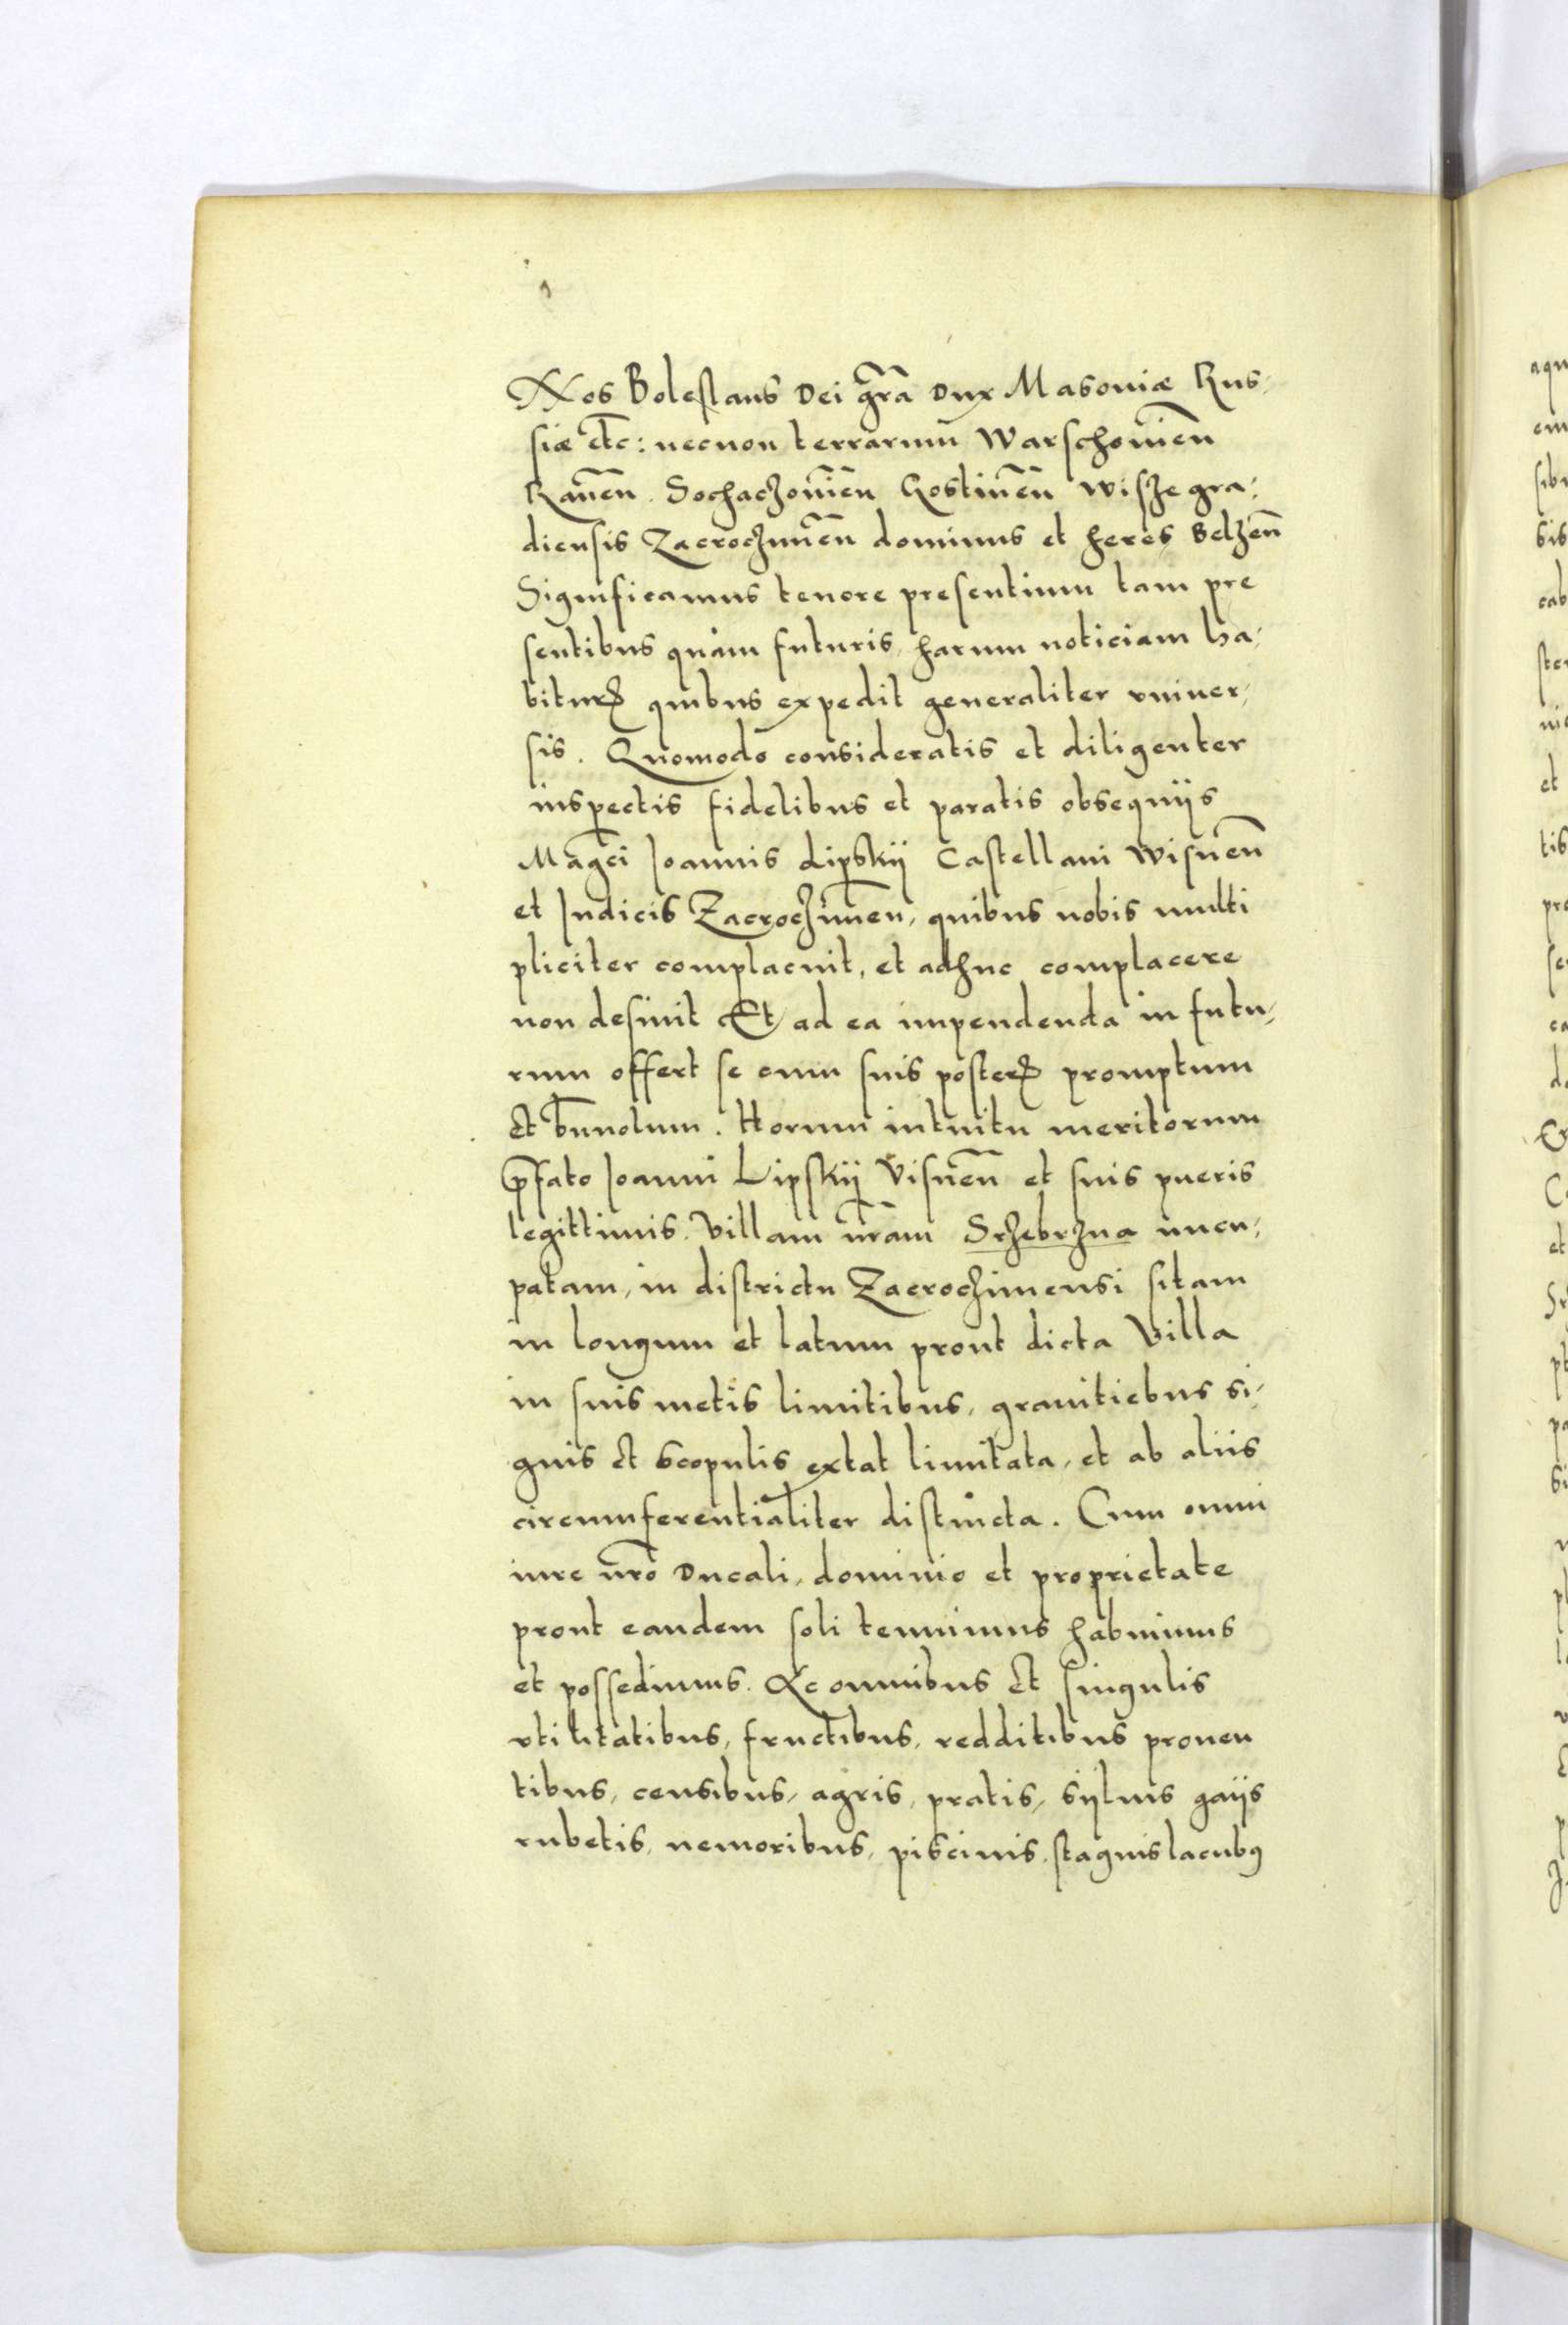 Nos Boleslaus Dei gr̃a Dux Masoviæ Rus-
siæ etc̃: necnon terrarum Warschovien̄
Raven̄. Sochaczovien̄ Gostinen̄ Wiszegra-
diensis Zacrocziminen̄ dominus et heres Belzen̄
Significamus tenore presentium tam pre
sentibus quàm futuris, harum noticiam ha-
bituris quibus expedit generaliter vniuer-
sis. Quomodo consideratis et diligenter
inspectis fidelibus et paratis obsequijs
Magc̄i Joannis Lipskij Castellani Wisnen̄
et Judicis Zacroczimen̄, quibus nobis multi
pliciter complacuit, et adhuc complacere
non desinit Et ad ea impendenda in futu-
rum offert se cum suis posteris promptum
et bn̄uolum. Horum intuitu meritorum
p̄fato Joanni Lipskij Visnen̄ et suis pueris
legittimis. Villam nr̄am Srzebrzna nuncu-
patam, in districtu Zacroczimensi sitam
in longum et latum prout dicta Villa
in suis metis limitibus, granitiebus si-
gnis et scopulis extat limitata, et ab aliis
circumferentialiter distincta. Cum omni
iure nr̄o Ducali, dominio et proprietate
prout eandem soli tenuimus habuimus
et possedimus. Ac omnibus et singulis
vtilitatibus, fructibus, redditibus prouen
tibus, censibus, agris, pratis, sijluis gaijs
rubetis, nemoribus, piscinis, stagnis lacubꝰ